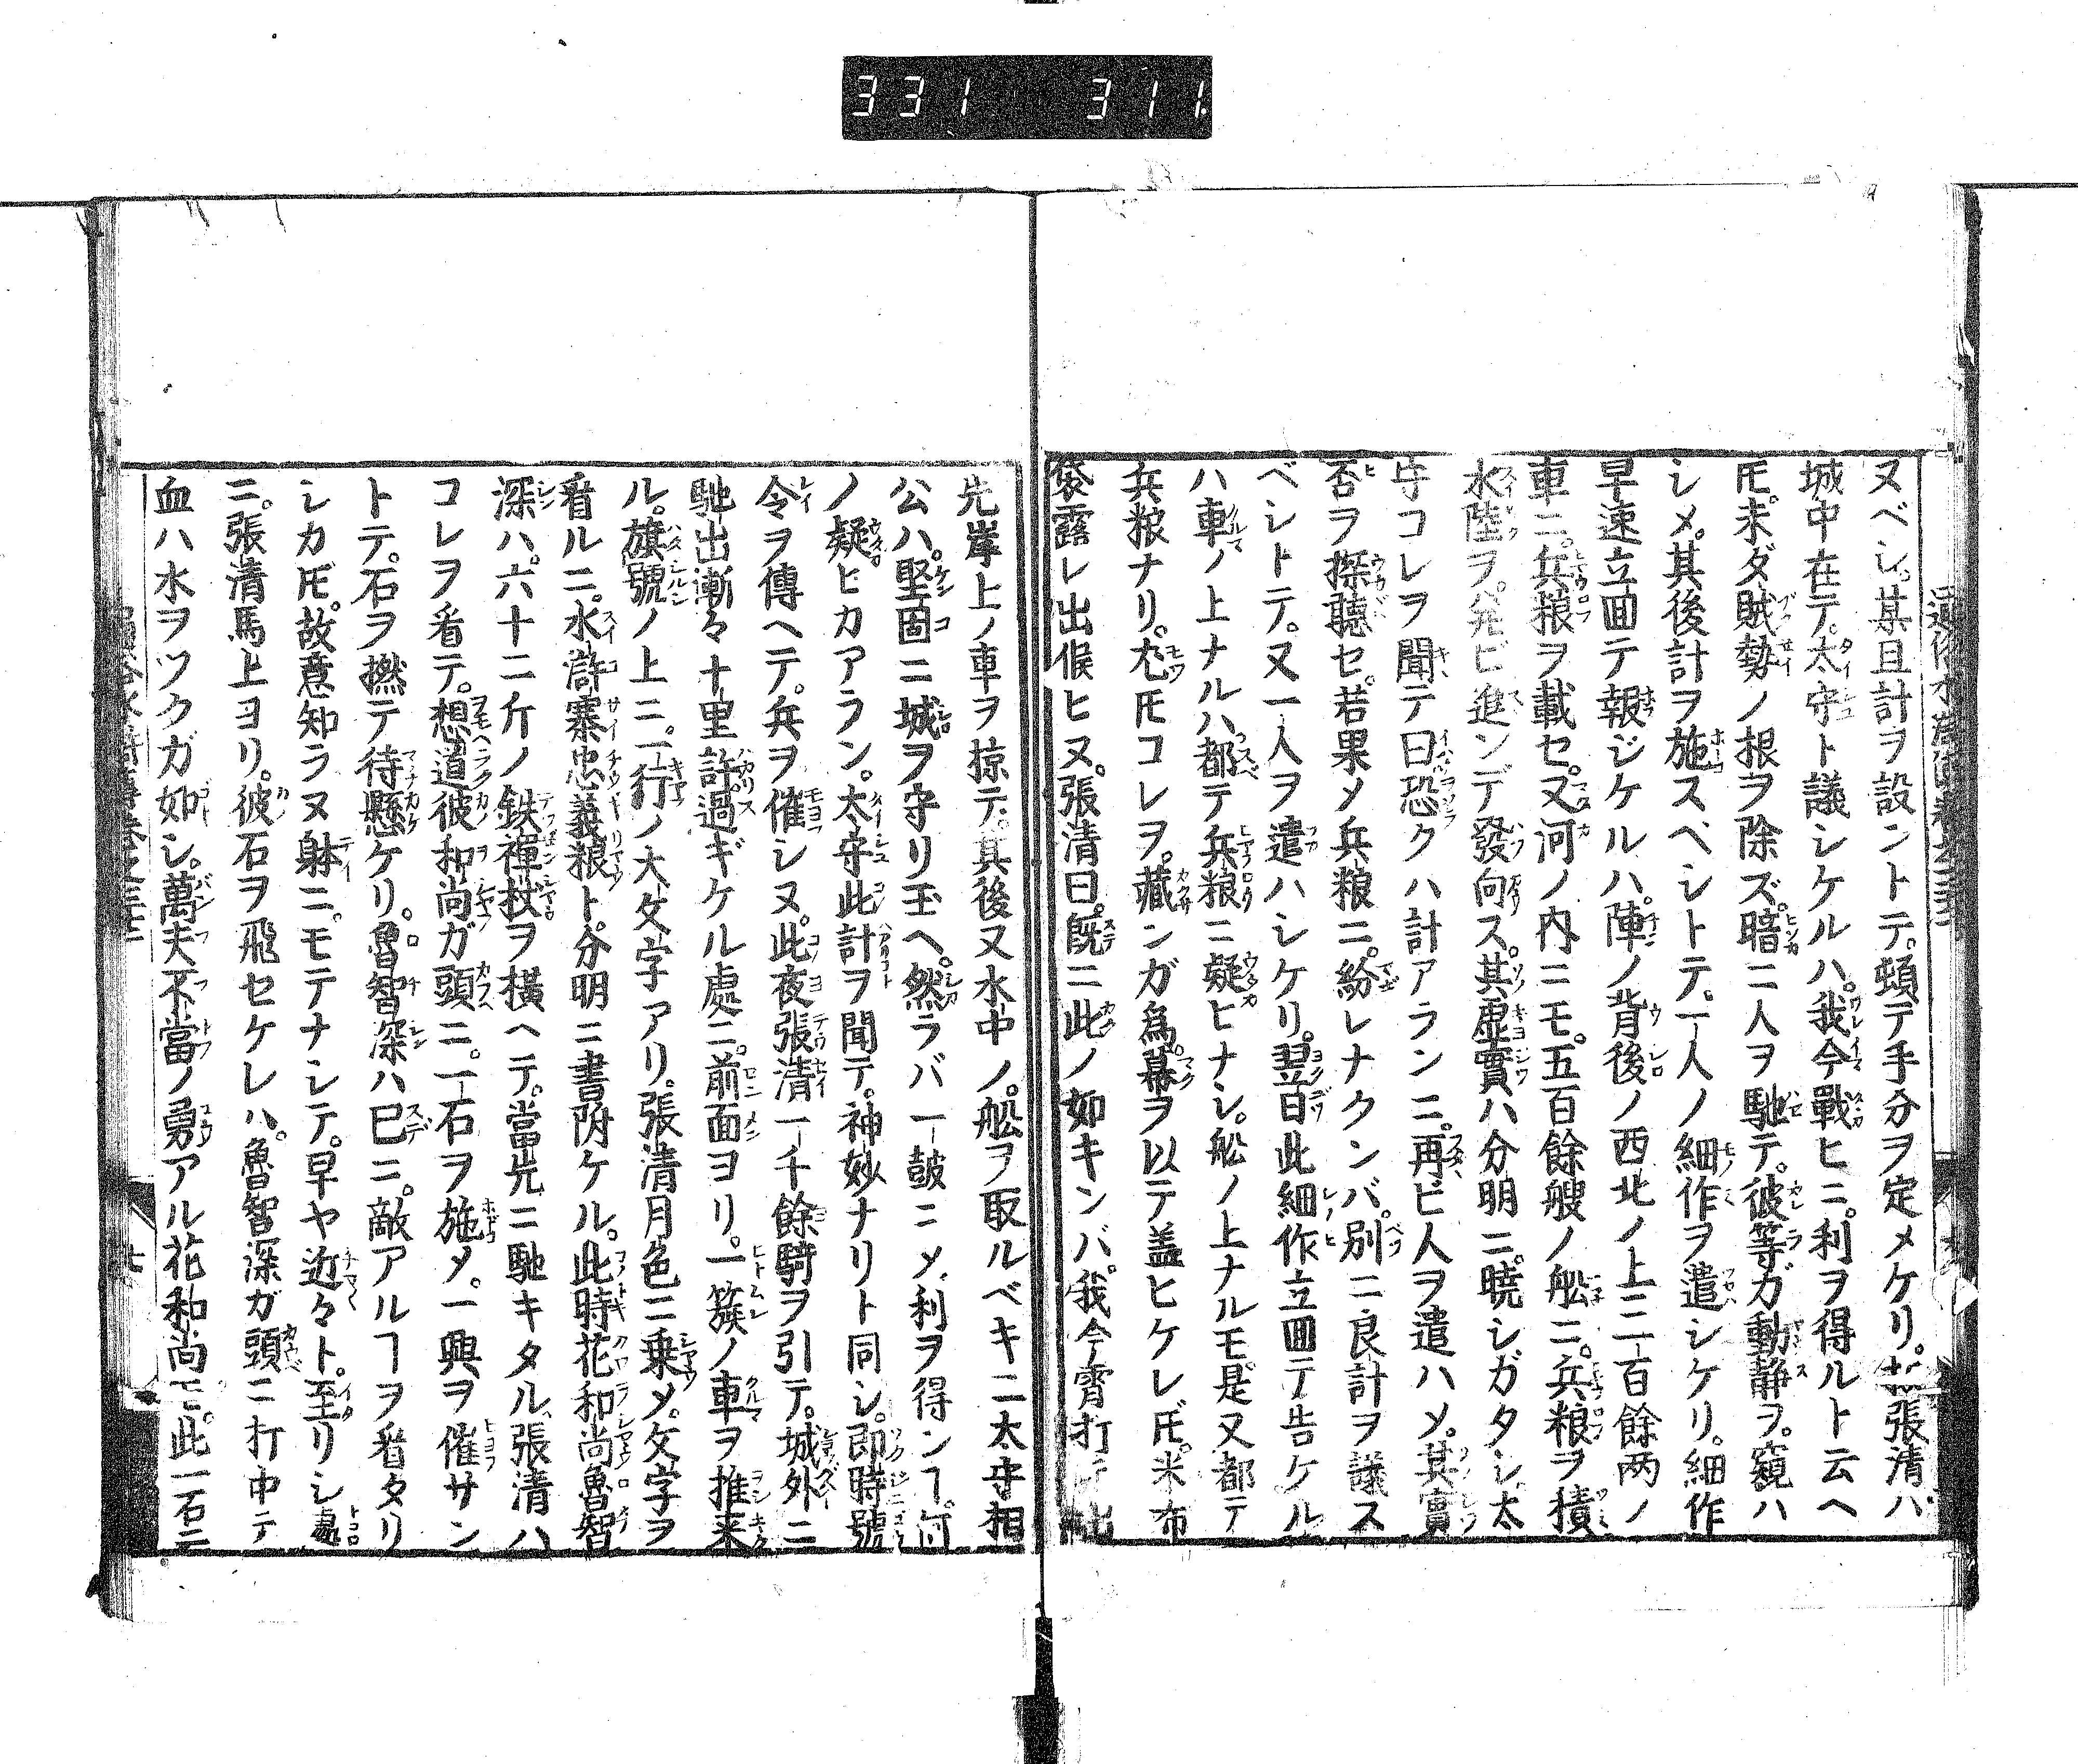 331 311
ヌベシ。某且計ヲ設ントテ。頓デ手分ヲ定メケリ。張清ハ
城中在テ。太守ト議シケルハ。我今戰ヒニ。利ヲ得ルト云ヘ
𪜈。未ダ賊勢ノ根ヲ除ズ。暗ニ人ヲ馳テ。彼等ガ動静ヲ。窺ハ
シメ。其後計ヲ施スベシトテ。一人ノ細作ヲ遣シケリ。細作
早速立囬テ報ジケルハ。陣ノ背後ノ西北ノ上ニ一百餘两ノ
車ニ。兵粮ヲ載セ。又河ノ内ニモ。五百餘艘ノ舩ニ。兵粮ヲ積
水陸ヲ。発ビ進ンデ發向ス。其虚實ハ分明ニ。曉シガタシ。太
守コレヲ聞テ曰恐クハ計アランニ。再ビ人ヲ遣ハメ。其實
否ヲ探聽セ。若果メ兵粮ニ。紛レナクンバ。別ニ良計ヲ議ス
ベシトテ。又一人ヲ遣ハシケリ。翌日此細作立囬テ告ケル
ハ車ノ上ナルハ都テ兵粮ニ疑ヒナシ。舩ノ上ナルモ是又都テ
兵粮ナリ。尤𪜈コレヲ。藏ンガ為。幕ヲ以テ盖ヒケレ𪜈。米布
袋露レ出候ヒヌ。張清曰。既ニ此ノ如キンバ。我今宵打
先岸上ノ車ヲ掠テ。其後又水中ノ。舩ヲ取ルベキニ太守相
公ハ。堅固ニ城ヲ守リ玉ヘ。然ラバ一鼓ニメ利ヲ得ンヿ。何
ノ疑ヒカアラン。太守此計ヲ聞テ。神妙ナリト同シ。即時號
令ヲ傳ヘテ。兵ヲ催シヌ。此夜張清一千餘騎ヲ引テ。城外ニ
馳出漸々十里許過ギケル處ニ。前面ヨリ。一簇ノ車ヲ推来
ル。旗號ノ上ニ。一行ノ大文字アリ。張清月色ニ乗メ。文字ヲ
看ルニ。水滸寨忠義粮ト。分明ニ書附ケル。此時花和尚魯智
深ハ。六十二斤ノ鉄禪杖ヲ横ヘテ。當先ニ馳キタル。張清ハ
コレヲ看テ。想道彼和尚ガ頭ニ。一石ヲ施メ。一興ヲ催サン
トテ。石ヲ撚テ待懸ケリ。魯智深ハ已ニ。敵アルヿヲ看タリ
シカ𪜈。故意知ラヌ躰ニ。モテナシテ。早ヤ近々ト。至リシ處
ニ。張清馬上ヨリ。彼石ヲ飛セケレハ。魯智深ガ頭ニ打中テ
血ハ水ヲツクガ如シ。萬夫不當ノ勇アル花和尚モ。此一石ニ